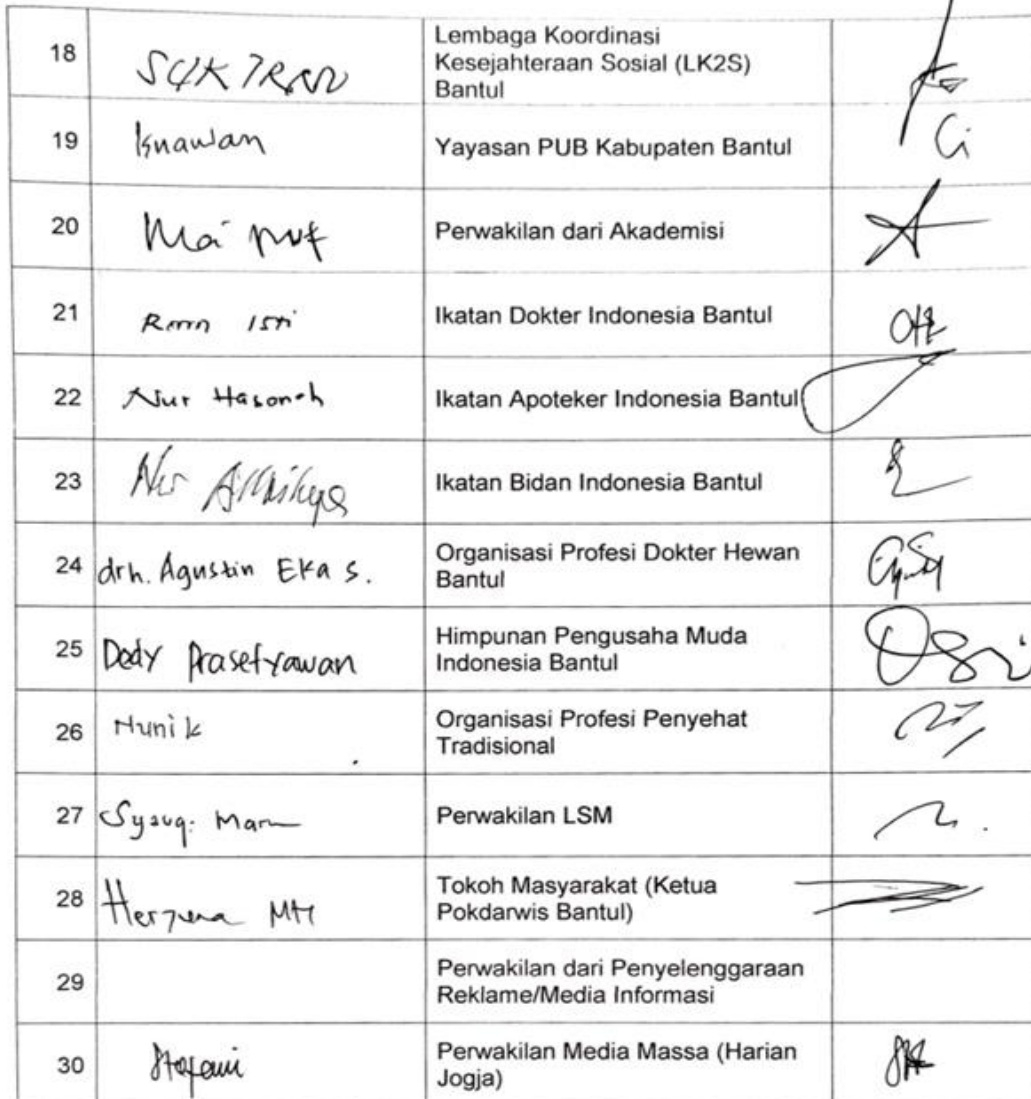 18 Lembaga Koordinasi
Kesejahteraan Sosial (LK2S)
Bantul
19 Isnawan Yayasan PUB Kabupaten Bantul
20 Perwakilan dari Akademisi
21 Isti Ikatan Dokter Indonesia Bantul
22 Nur Hasonah Ikatan Apoteker Indonesia Bantul
23 Nur Ikatan Bidan Indonesia Bantul
24 drh. Agustin Eka S. Organisasi Profesi Dokter Hewan
Bantul
25 Dedy Prasetyawan Himpunan Pengusaha Muda
Indonesia Bantul
26 Nunik Organisasi Profesi Penyehat
Tradisional
27 Syauqi Perwakilan LSM
28 Tokoh Masyarakat (Ketua
Pokdarwis Bantul)
29 Perwakilan dari Penyelenggaraan
Reklame/Media Informasi
30 Stefani Perwakilan Media Massa (Harian
Jogja)